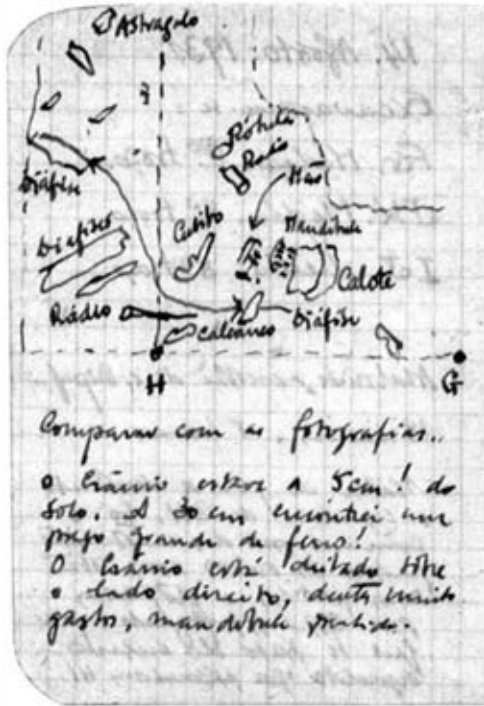 Astragalo
Rótula
Radio
Diáfise
Mão
Diáfises
Cubito
Mandibula
Calote
Rádio
Calcâneo
Diáfise
H
G
Comparar com as fotografias..
O Crânio estava a 5cm! do
solo. A 30 cm encontrei um
prego grande de ferro!
O Crânio está deitado sôbre
o lado direito, dentes muito
gastos, mandibula partida.